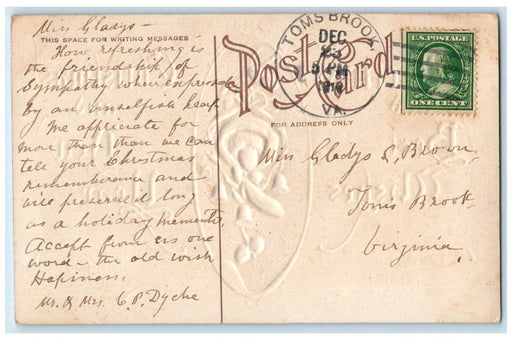 Miss Gladys –
THIS SPACE FOR WRITING MESSAGES
How refreshing is
the friendship of
Sympathy when expressed
by an unselfish heart
We appricate far
more than than we can
tell your Christmas
rememberance and
will preserve it long
as a holiday memento.
Accept from us one
word – the old wish
Hapiness.
Mr. & Mrs. C. P. Dyche
Post Card
FOR ADDRESS ONLY
TOMS BROOK
DEC
23
5 PM
VA.
U.S. POSTAGE
ONE CENT
Miss Gladys S. Brown
Toms Brook
Virginia